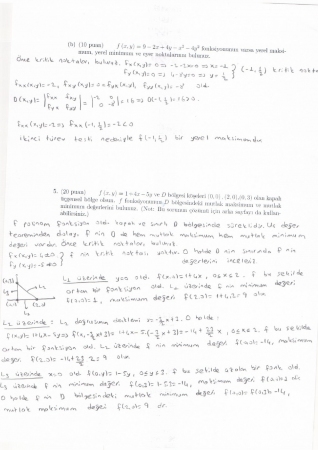 (b) (10 puan) f(x, y) = 9 − 2x + 4y − x² − 4y² fonksiyonunun varsa yerel maksi-
mum, yerel minimum ve eyer noktalarını bulunuz.
Önce kritik noktaları bulunuz. fx(x,y)=0 ⇒ -2-2x=0 ⇒ x=-1
fy(x,y)=0 ⇒ 4-8y=0 ⇒ y=1/2 } (-1, 1/2) kritik nokta
fxx(x,y)=-2, fxy(x,y)=0=fyx(x,y), fyy(x,y)=-8 old.
D(x,y)= |fxx fxy fyx fyy| = |-2 0 0 -8| =16 ⇒ D(-1,1/2)=16>0.
fxx(x,y)=-2 ⇒ fxx(-1,1/2)=-2<0
ikinci türev testi nedeniyle f(-1,1/2) bir yerel maksimumdur
5. (20 puan) f(x, y) = 1+4x−5y ve D bölgesi köşeleri (0,0), (2,0), (0,3) olan kapalı
üçgensel bölge olsun. f fonksiyonunun D bölgesindeki mutlak maksimum ve mutlak
minimum değerlerini bulunuz. (Not: Bu sorunun çözümü için arka sayfayı da kullan-
abilirsiniz.)
f polinom fonksiyon old. kapalı ve sınırlı D bölgesinde süreklidir. Uç değer
teoreminden dolayı f nin D de hem mutlak maksimum hem mutlak minimum
değeri vardır. Önce kritik noktaları bulunuz.
fx(x,y)=4≠0
fy(x,y)=-5≠0 } f nin kritik noktası yoktur. O halde D nin sınırında f nin
değerlerini inceleriz.
L1 üzerinde y=0 old. f(x,0)=1+4x, 0≤x≤2. f bu şekilde
artan bir fonksiyon old. L1 üzerinde f nin minimum değeri
f(0,0)=1, maksimum değeri f(2,0)=1+4.2=9 olur
L2 üzerinde: L2 doğrusunun denklemi y=-3/2x+3. O halde
f(x,y)=1+4x-5y ⇒ f(x,-3/2x+3)=1+4x-5(-3/2x+3)=-14+23/2x, 0≤x≤2. f bu şekilde
artan bir fonksiyon old. L2 üzerinde f nin minimum değeri f(0,3)=-14, maksimum
değeri f(2,0)=-14+23/2.2=9 olur
L3 üzerinde x=0 old. f(0,y)=1-5y, 0≤y≤3. f bu şekilde azalan bir fonk. old.
L3 üzerinde f nin minimum değeri f(0,3)=1-5.3=-14, maksimum değeri f(0,0)=1 dir
O halde f nin D bölgesindeki mutlak minimum değeri f(0,3)=-14,
mutlak maksimum değeri f(2,0)=9 dir.